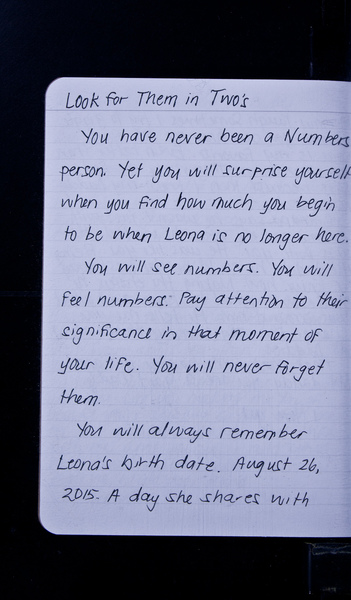 Look for Them in Two's
You have never been a Numbers
person. Yet you will surprise yourself
when you find how much you begin
to be when Leona is no longer here.
You will see numbers. You will
feel numbers. Pay attention to their
significance in that moment of
your life. You will never forget
them.
You will always remember
Leona's birth date. August 26,
2015. A day she shares with